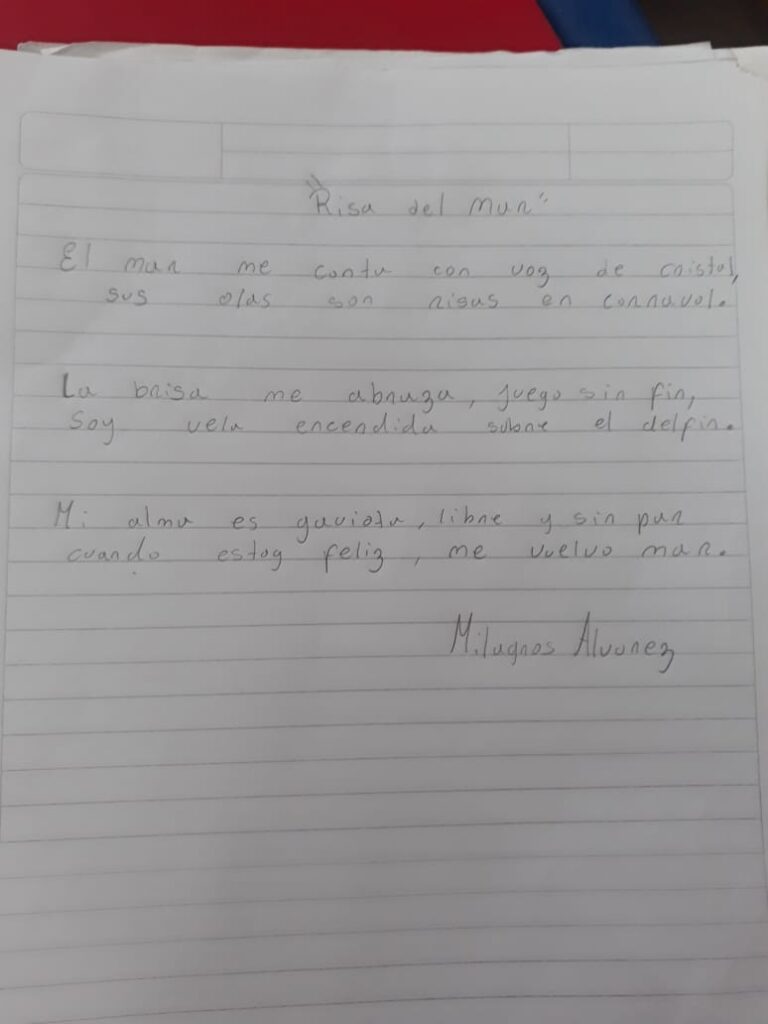 "Risa del mar"
El mar me canta con voz de cristal,
sus olas son risas en carnaval.
La brisa me abraza, juego sin fin,
Soy vela encendida sobre el delfin.
Mi alma es gaviota, libre y sin par
cuando estoy feliz, me vuelvo mar.
Milagros Alvarez